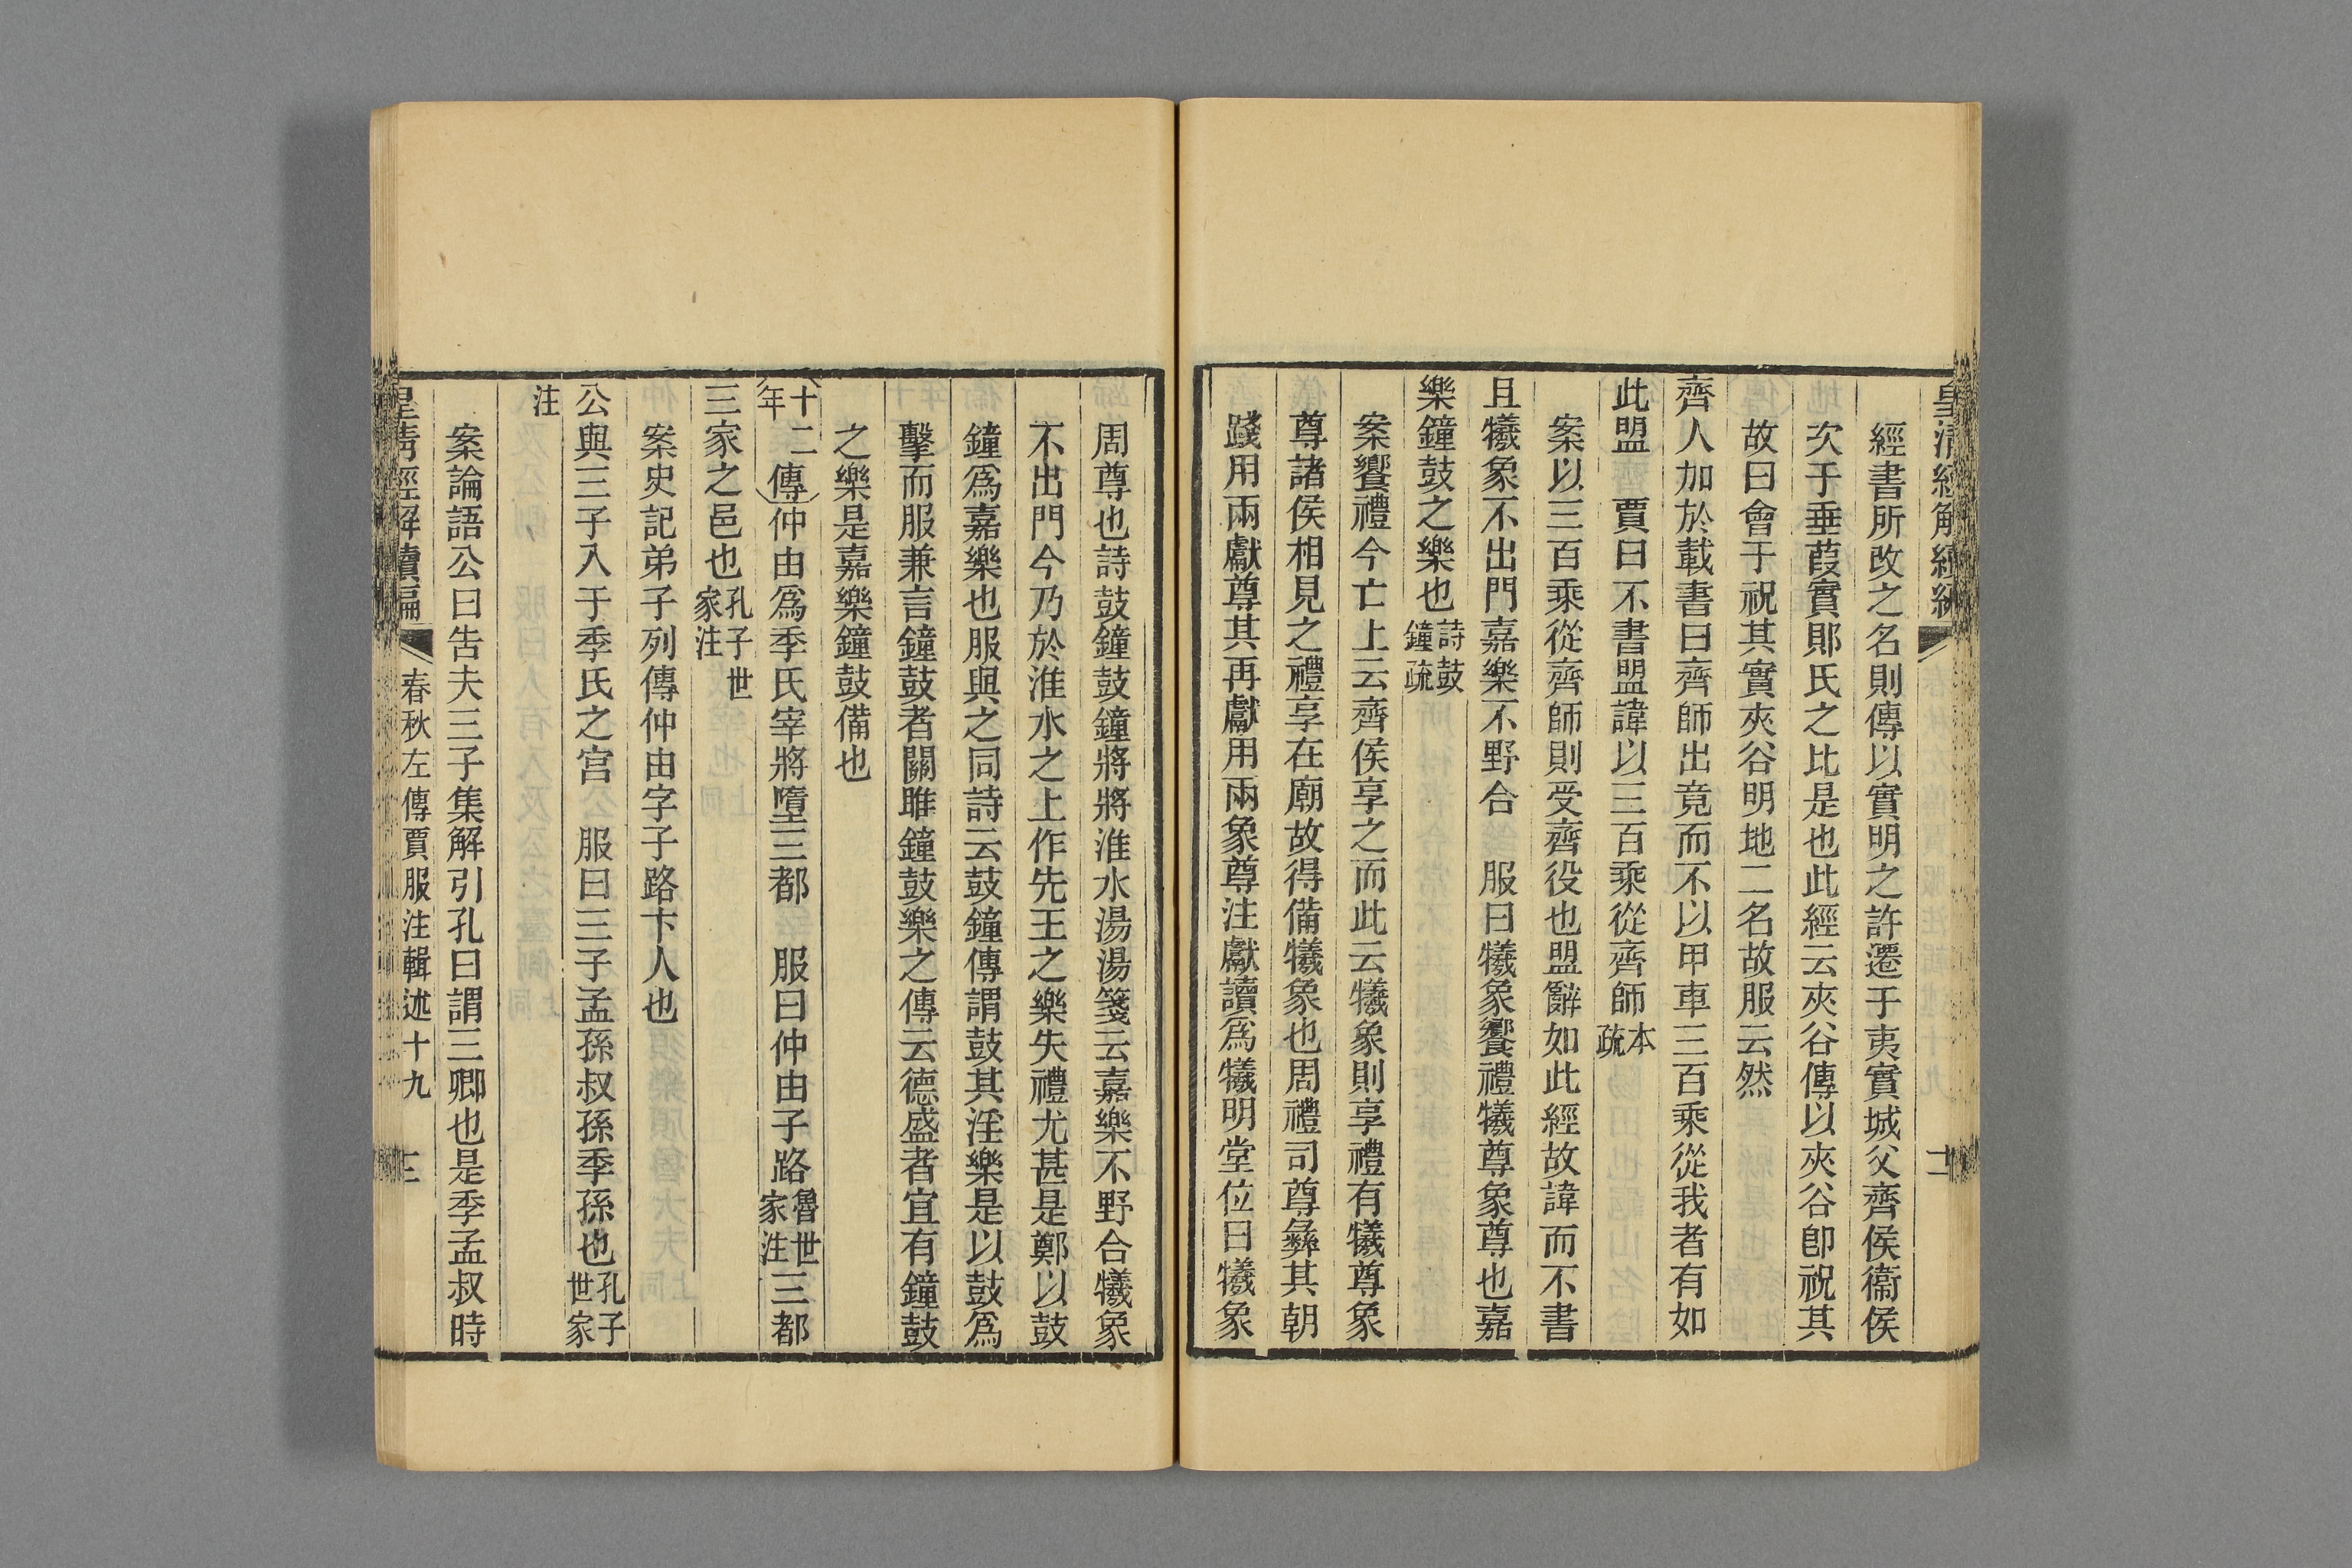 皇清經解續編
經書所改之名則傳以實明之許遷于夷實城父齊侯衞侯
次于垂葭實郥氏之比是也此經云夾谷傳以夾谷卽祝其
故曰會于祝其實夾谷明地二名故服云然
齊人加於載書曰齊師出竟而不以甲車三百乘從我者有如
此盟　賈曰不書盟諱以三百乘從齊師本疏
案以三百乘從齊師則受齊役也盟辭如此經故諱而不書
且犧象不出門嘉樂不野合　服曰犧象饗禮犧尊象尊也嘉
樂鐘鼓之樂也詩鼓鐘疏
案饗禮今亡上云齊侯享之而此云犧象則享禮有犧尊象
尊諸侯相見之禮享在廟故得備犧象也周禮司尊彝其朝
踐用兩獻尊其再獻用兩象尊注獻讀爲犧明堂位曰犧象
周尊也詩鼓鐘鼓鐘將將淮水湯湯箋云嘉樂不野合犧象
不出門今乃於淮水之上作先王之樂失禮尤甚是鄭以鼓
鐘爲嘉樂也服與之同詩云鼓鐘傳謂鼓其淫樂是以鼓爲
擊而服兼言鐘鼓者關雎鐘鼓樂之傳云德盛者宜有鐘鼓
之樂是嘉樂鐘鼓備也
十二年傳仲由爲季氏宰將墮三都　服曰仲由子路魯世家注三都
三家之邑也孔子世家注
案史記弟子列傳仲由字子路卞人也
公與三子入于季氏之宮　服曰三子孟孫叔孫季孫也孔子世家
注
案論語公曰告夫三子集解引孔曰謂三卿也是季孟叔時
皇清經解續編　春秋左傳賈服注輯述十九